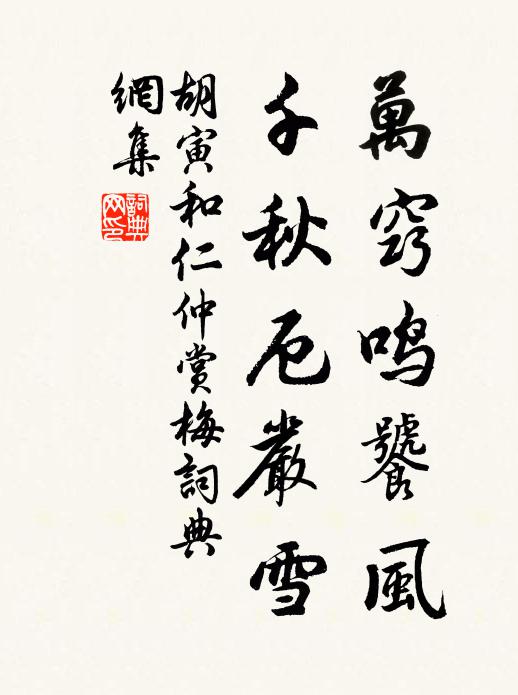 萬竅鳴饕風
千秋厄嚴雪
胡寅和仁仲賞梅詞典
網集
詞典网印